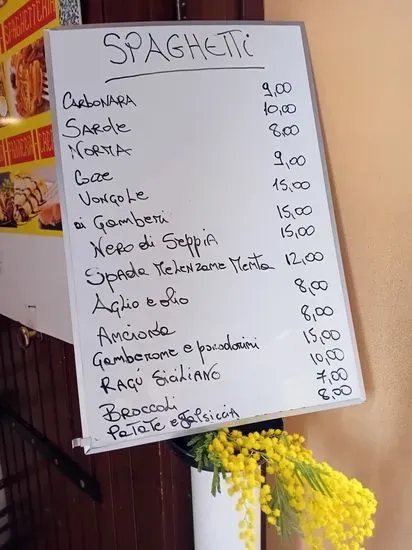 SPAGHETTERIA
SPAGHETTI
CARBONARA 9,00
SARDE 10,00
NORMA 8,00
COZZE 9,00
VONGOLE 15,00
ai Gamberi 15,00
NERO di SEPPIA 15,00
SPADA MELENZANE MENTA 12,00
AGLIO e olio 8,00
AMCIOVE 8,00
Gamberone e pomodorini 15,00
RAGÚ SICILIANO 10,00
BROCCOLI 7,00
PATATE e SALSICCIA 8,00